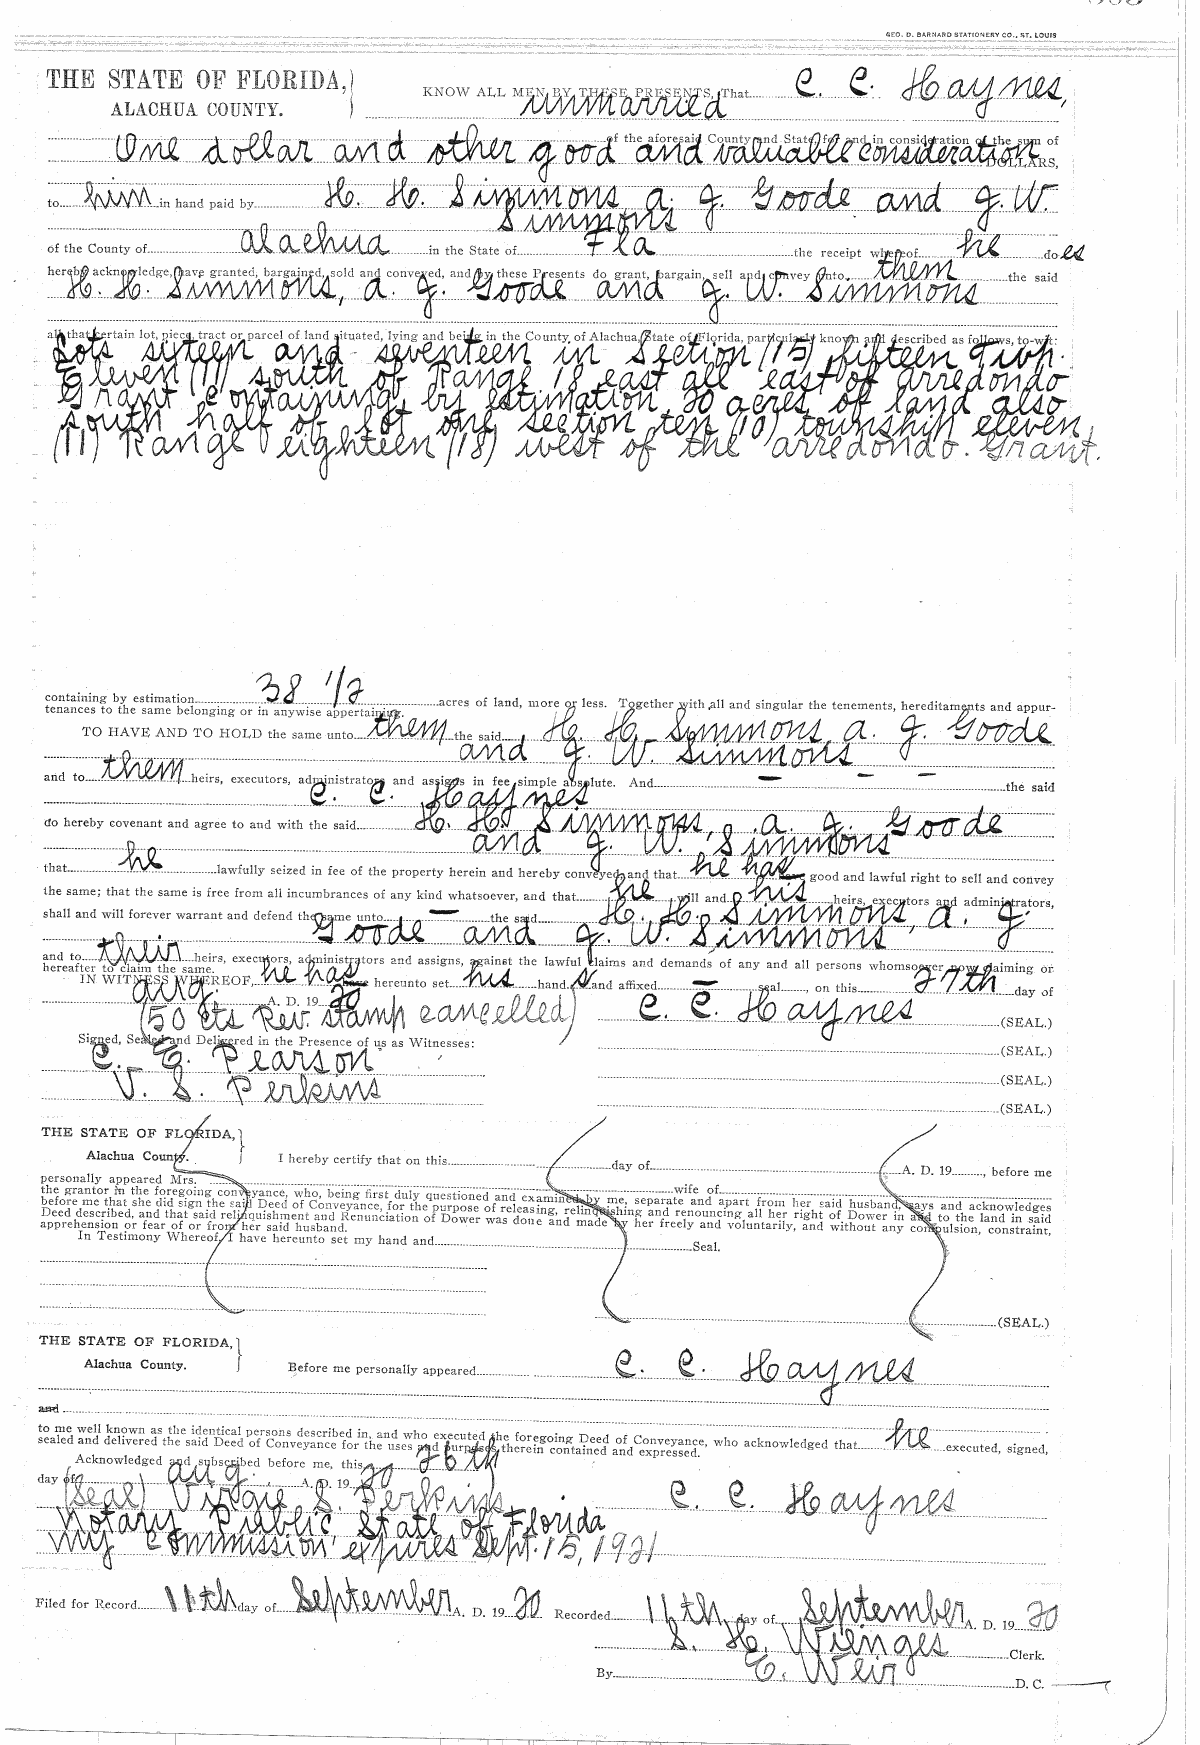 GEO. D. BARNARD STATIONERY CO., ST. LOUIS
THE STATE OF FLORIDA,
ALACHUA COUNTY.
KNOW ALL MEN BY THESE PRESENTS, That C. C. Haynes,
unmarried
of the aforesaid County and State, for and in consideration of the sum of
One dollar and other good and valuable consideration DOLLARS,
to him in hand paid by H. H. Simmons a. g. Goode and g. W.
Simmons
of the County of alachua in the State of Fla the receipt whereof he does
hereby acknowledge, have granted, bargained, sold and conveyed, and by these Presents do grant, bargain, sell and convey unto them the said
H. H. Simmons, a. g. Goode and g. W. Simmons
all that certain lot, piece, tract or parcel of land situated, lying and being in the County of Alachua, State of Florida, particularly known and described as follows, to-wit:
Lots sixteen and seventeen in Section (15) fifteen Twp.
Eleven (11) south of Range 18 east all east of arredondo
Grant containing by estimation 20 acres of land also
south half of lot one section ten (10) township eleven
(11) Range eighteen (18) west of the arredondo. Grant.
containing by estimation 38 1/2 acres of land, more or less. Together with all and singular the tenements, hereditaments and appur-
tenances to the same belonging or in anywise appertaining.
TO HAVE AND TO HOLD the same unto them the said H. H. Simmons a. g. Goode
and g. W. Simmons
and to them heirs, executors, administrators and assigns in fee simple absolute. And — — — the said
C. C. Haynes
do hereby covenant and agree to and with the said H. H. Simmons, a. g. Goode
and g. W. Simmons
that he lawfully seized in fee of the property herein and hereby conveyed, and that he has good and lawful right to sell and convey
the same; that the same is free from all incumbrances of any kind whatsoever, and that he will and his heirs, executors and administrators,
shall and will forever warrant and defend the same unto — the said H. H. Simmons, a. g.
Goode and g. W. Simmons
and to their heirs, executors, administrators and assigns, against the lawful claims and demands of any and all persons whomsoever now claiming or
hereafter to claim the same.
IN WITNESS WHEREOF, he has have hereunto set his hand s and affixed — seal, on this 27th day of
aug. A. D. 19 20
(50 cts Rev. stamp cancelled) C. C. Haynes (SEAL.)
Signed, Sealed and Delivered in the Presence of us as Witnesses: (SEAL.)
C. C. Pearson (SEAL.)
V. S. Perkins (SEAL.)
THE STATE OF FLORIDA,
Alachua County. I hereby certify that on this day of A. D. 19 , before me
personally appeared Mrs. wife of
the grantor in the foregoing conveyance, who, being first duly questioned and examined by me, separate and apart from her said husband, says and acknowledges
before me that she did sign the said Deed of Conveyance, for the purpose of releasing, relinquishing and renouncing all her right of Dower in and to the land in said
Deed described, and that said relinquishment and Renunciation of Dower was done and made by her freely and voluntarily, and without any compulsion, constraint,
apprehension or fear of or from her said husband.
In Testimony Whereof, I have hereunto set my hand and Seal.
(SEAL.)
THE STATE OF FLORIDA,
Alachua County. Before me personally appeared C. C. Haynes
and
to me well known as the identical persons described in, and who executed the foregoing Deed of Conveyance, who acknowledged that he executed, signed,
sealed and delivered the said Deed of Conveyance for the uses and purposes therein contained and expressed.
Acknowledged and subscribed before me, this 26th
day of aug. A. D. 19 20
(Seal) Virgie S. Perkins C. C. Haynes
Notary Public State of Florida
My Commission expires Sept. 15, 1921
Filed for Record 11th day of September A. D. 19 20 Recorded 11th day of September A. D. 19 20
S. H. Wienges Clerk.
By E. Weir D. C.